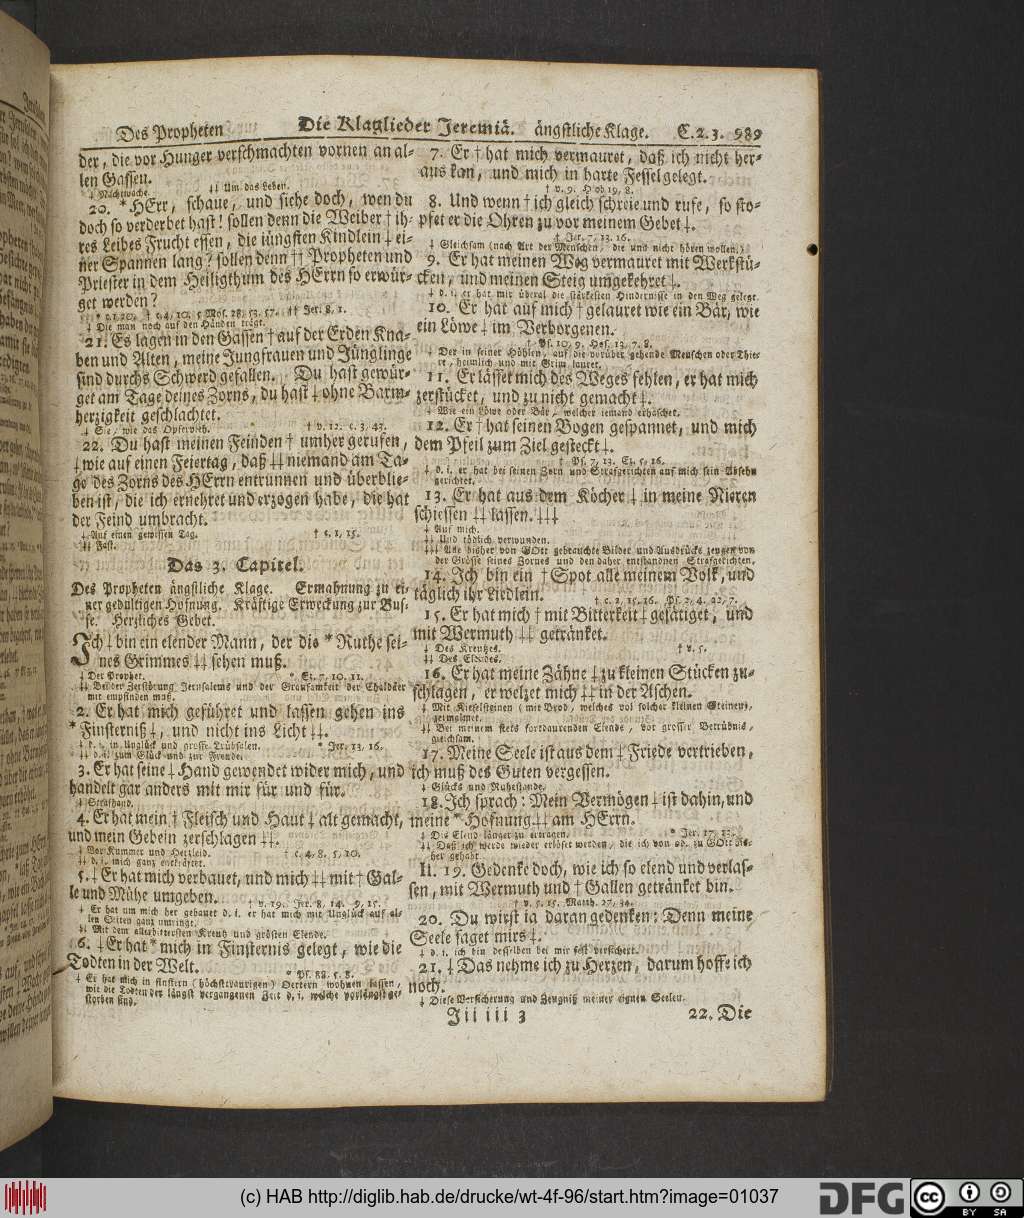 Des Propheten Die Klaglieder Jeremiä. ängstliche Klage. C. 2. 3. 989
der, die vor Hunger verschmachten vornen an al-
len Gassen.
‡ Nachtwache. ‡‡ Um das Leben.
20. * HErr, schaue, und siehe doch, wen du
doch so verderbet hast! sollen denn die Weiber † ih-
res Leibes Frucht essen, die jüngsten Kindlein ‡ ei-
ner Spannen lang? sollen denn †† Propheten und
Priester in dem Heiligthum des HErrn so erwür-
get werden?
* c. 1, 20. † c. 4, 10. 5 Mos. 28, 53. 57. †† Jer. 8, 1.
‡ Die man noch auf den Händen trägt.
21. Es lagen in den Gassen † auf der Erden Kna-
ben und Alten, meine Jungfrauen und Jünglinge
sind durchs Schwerd gefallen. Du hast gewür-
get am Tage deines Zorns, du hast ‡ ohne Barm-
herzigkeit geschlachtet.
‡ Sie, wie das Opfervieh. † v. 12. c. 3, 43.
22. Du hast meinen Feinden † umher gerufen,
‡ wie auf einen Feiertag, daß ‡‡ niemand am Ta-
ge des Zorns des HErrn entrunnen und überblie-
ben ist, die ich ernehret und erzogen habe, die hat
der Feind umbracht.
‡ Auf einen gewissen Tag. † c. 1, 15.
‡‡ Fast.
Das 3. Capitel.
Des Propheten ängstliche Klage. Ermahnung zu ei-
ner gedultigen Hofnung. Kräftige Erweckung zur Bus-
se. Herzliches Gebet.
Jch ‡ bin ein elender Mann, der die * Ruthe sei-
nes Grimmes ‡‡ sehen muß.
‡ Der Prophet. * Es. 7, 10. 11.
‡‡ Bei der Zerstörung Jerusalems und der Grausamkeit der Chaldäer
mit empfinden muß.
2. Er hat mich geführet und lassen gehen ins
* Finsterniß ‡, und nicht ins Licht ‡‡.
‡ d. i. in Unglück und grosse Trübsalen. * Jer. 13, 16.
‡‡ d. i. zum Glück und zur Freude.
3. Er hat seine ‡ Hand gewendet wider mich, und
handelt gar anders mit mir für und für.
‡ Strafhand.
4. Er hat mein † Fleisch und Haut ‡ alt gemacht,
und mein Gebein zerschlagen ‡‡.
‡ Vor Kummer und Herzleid. † c. 4, 8. 5, 10.
‡‡ d. i. mich ganz entkräftet.
5. ‡ Er hat mich verbauet, und mich ‡‡ mit † Gal-
le und Mühe umgeben. † v. 19. Jer. 8, 14. 9, 15.
‡ Er hat um mich her gebauet d. i. er hat mich mit Unglück auf al-
len Seiten ganz umringt.
‡‡ Mit dem allerbittersten Kreuz und grösten Elende.
6. ‡ Er hat * mich in Finsternis gelegt, wie die
Todten in der Welt. * Ps. 88, 5. 8.
‡ Er hat mich in finstern (höchsttraurigen) Oertern wohnen lassen,
wie die Todten der längst vergangenen Zeit d. i. welche vorlängst ge-
storben sind.
7. Er † hat mich vermauret, daß ich nicht her-
aus kan, und mich in harte Fessel gelegt.
† v. 9. Hiob 19, 8.
8. Und wenn † ich gleich schreie und rufe, so sto-
pfet er die Ohren zu vor meinem Gebet ‡.
† Jer. 7, 13. 16.
‡ Gleichsam (nach Art der Menschen, die uns nicht hören wollen.)
9. Er hat meinen Weg vermauret mit Werkstü-
cken, und meinen Steig umgekehret ‡.
‡ d. i. er hat mir überal die stärkesten Hindernisse in den Weg gelegt.
10. Er hat auf mich † gelauret wie ein Bär, wie
ein Löwe ‡ im Verborgenen.
† Ps. 10, 9. Hos. 13, 7. 8.
‡ Der in seiner Höhlen, auf die vorüber gehende Menschen oder Thie-
re, heimlich und mit Grim lauret.
11. Er lässet mich des Weges fehlen, er hat mich
zerstücket, und zu nicht gemacht ‡.
‡ Wie ein Löwe oder Bär, welcher iemand erhaschet.
12. Er † hat seinen Bogen gespannet, und mich
dem Pfeil zum Ziel gesteckt ‡.
† Ps. 7, 13. Es. 5, 16.
‡ d. i. er hat bei seinen Zorn und Strafgerichten auf mich sein Absehn
gerichtet.
13. Er hat aus dem Köcher ‡ in meine Nieren
schiessen ‡‡ lassen. ‡‡‡
‡ Auf mich.
‡‡ Und tödlich verwunden.
‡‡‡ Alle bisher von GOtt gebrauchte Bilder und Ausdrücke zeugen von
der Grösse seines Zornes und den daher entstandnen Strafgerichten.
14. Ich bin ein † Spot alle meinem Volk, und
täglich ihr Liedlein. † c. 2, 15. 16. Ps. 2, 4. 22, 7.
15. Er hat mich † mit Bitterkeit ‡ gesätiget, und
mit Wermuth ‡‡ getränket.
‡ Des Kreutzes. † v. 5.
‡‡ Des Elendes.
16. Er hat meine Zähne ‡ zu kleinen Stücken zu-
schlagen, er welzet mich ‡‡ in der Aschen.
‡ Mit Kieselsteinen (mit Brod, welches vol solcher kleinen Steinen),
zermalmet.
‡‡ Bei meinem stets fortdaurenden Elende, vor grosser Betrübnis,
gleichsam.
17. Meine Seele ist aus dem ‡ Friede vertrieben,
ich muß des Guten vergessen.
‡ Glücks und Ruhestande.
18. Ich sprach: Mein Vermögen ‡ ist dahin, und
meine * Hofnung ‡‡ am HErrn.
‡ Dis Elend länger zu ertragen. * Jer. 17, 13.
‡‡ Daß ich werde wieder erlöset werden, die ich von ... zu GOtt ...
her gehabt.
II. 19. Gedenke doch, wie ich so elend und verlas-
sen, mit Wermuth und † Gallen getränket bin.
† v. 5. 15. Matth. 27, 34.
20. Du wirst ja daran gedenken: Denn meine
Seele saget mirs ‡.
‡ d. i. ich bin desselben bei mir fest versichert.
21. ‡ Das nehme ich zu Herzen, darum hoffe ich
noch.
‡ Diese Versicherung und Zeugniß meiner eignen Seelen.
Jii iii 3 22. Die
(c) HAB http://diglib.hab.de/drucke/wt-4f-96/start.htm?image=01037
DFG
cc BY SA